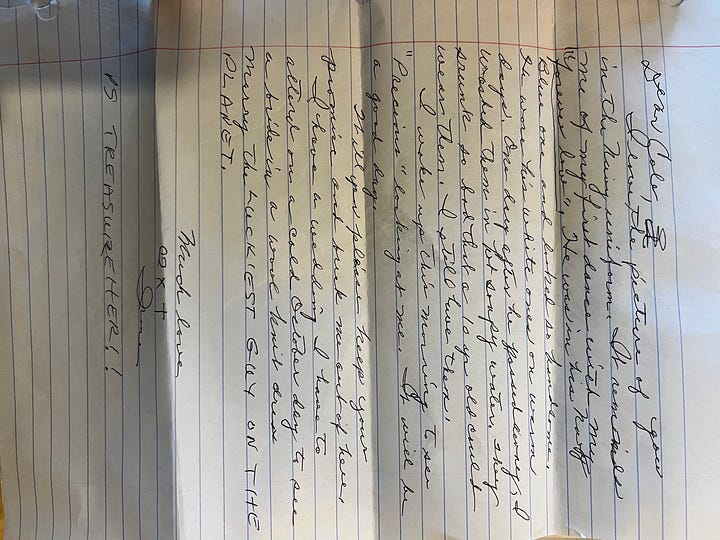 Dear Cole,
I love the picture of you
in the Navy uniform. It reminds
me of my first dance with my
"forever love". He was in his Navy
Blue one and looked so handsome.
He wore his white ones on warm
days. One day after he passed away, I
washed them in hot soapy water, they
shrunk so bad that a 10 yr old could
wear them. I still have them.
I woke up this morning to see
"Precious" looking at me. It will be
a good day.
Will you please keep your
promise and bust me out of here,
I have a wedding I have to
attend on a cold October day to see
a bride in a wool knit dress
marry the LUCKIEST GUY ON THE
PLANET.
Much love
PS TREASURE HER!!